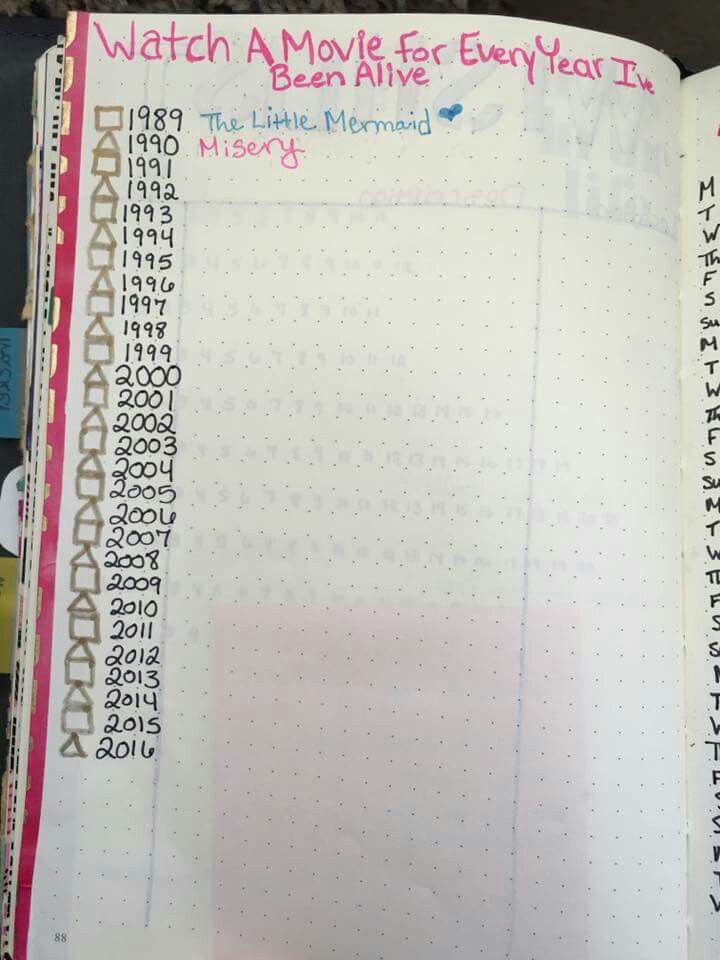 Watch A Movie For Every Year I've
Been Alive
1989 The Little Mermaid
1990 Misery
1991
1992
1993
1994
1995
1996
1997
1998
1999
2000
2001
2002
2003
2004
2005
2006
2007
2008
2009
2010
2011
2012
2013
2014
2015
2016
88
M
T
W
Th
F
S
Su
M
T
W
Th
F
S
Su
M
T
W
Th
F
S